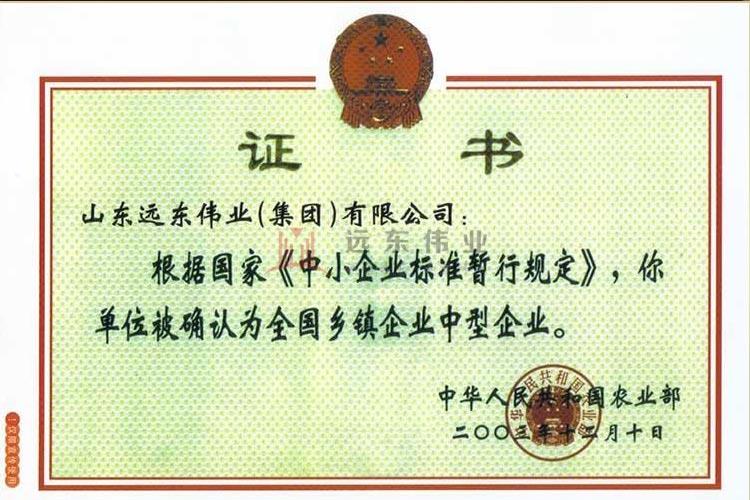 证 书
山东远东伟业(集团)有限公司：
远东伟业
根据国家《中小企业标准暂行规定》，你
单位被确认为全国乡镇企业中型企业。
中华人民共和国农业部
二〇〇三年十二月十日
中华人民共和国农业部
！仅做宣传使用